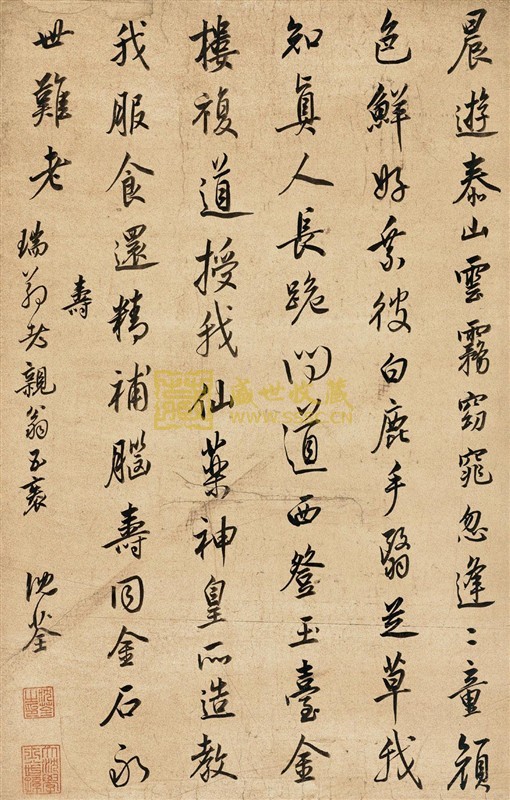 晨遊泰山雲霧窈窕忽逢二童顏
色鮮好乘彼白鹿手翳芝草我
知眞人長跪問道西登玉臺金
樓複道授我仙藥神皇所造教
我服食還精補腦壽同金石永
世難老
壽
瑞翁老親翁五袠
沈荃
盛世收藏
WWW.SSSC.CN